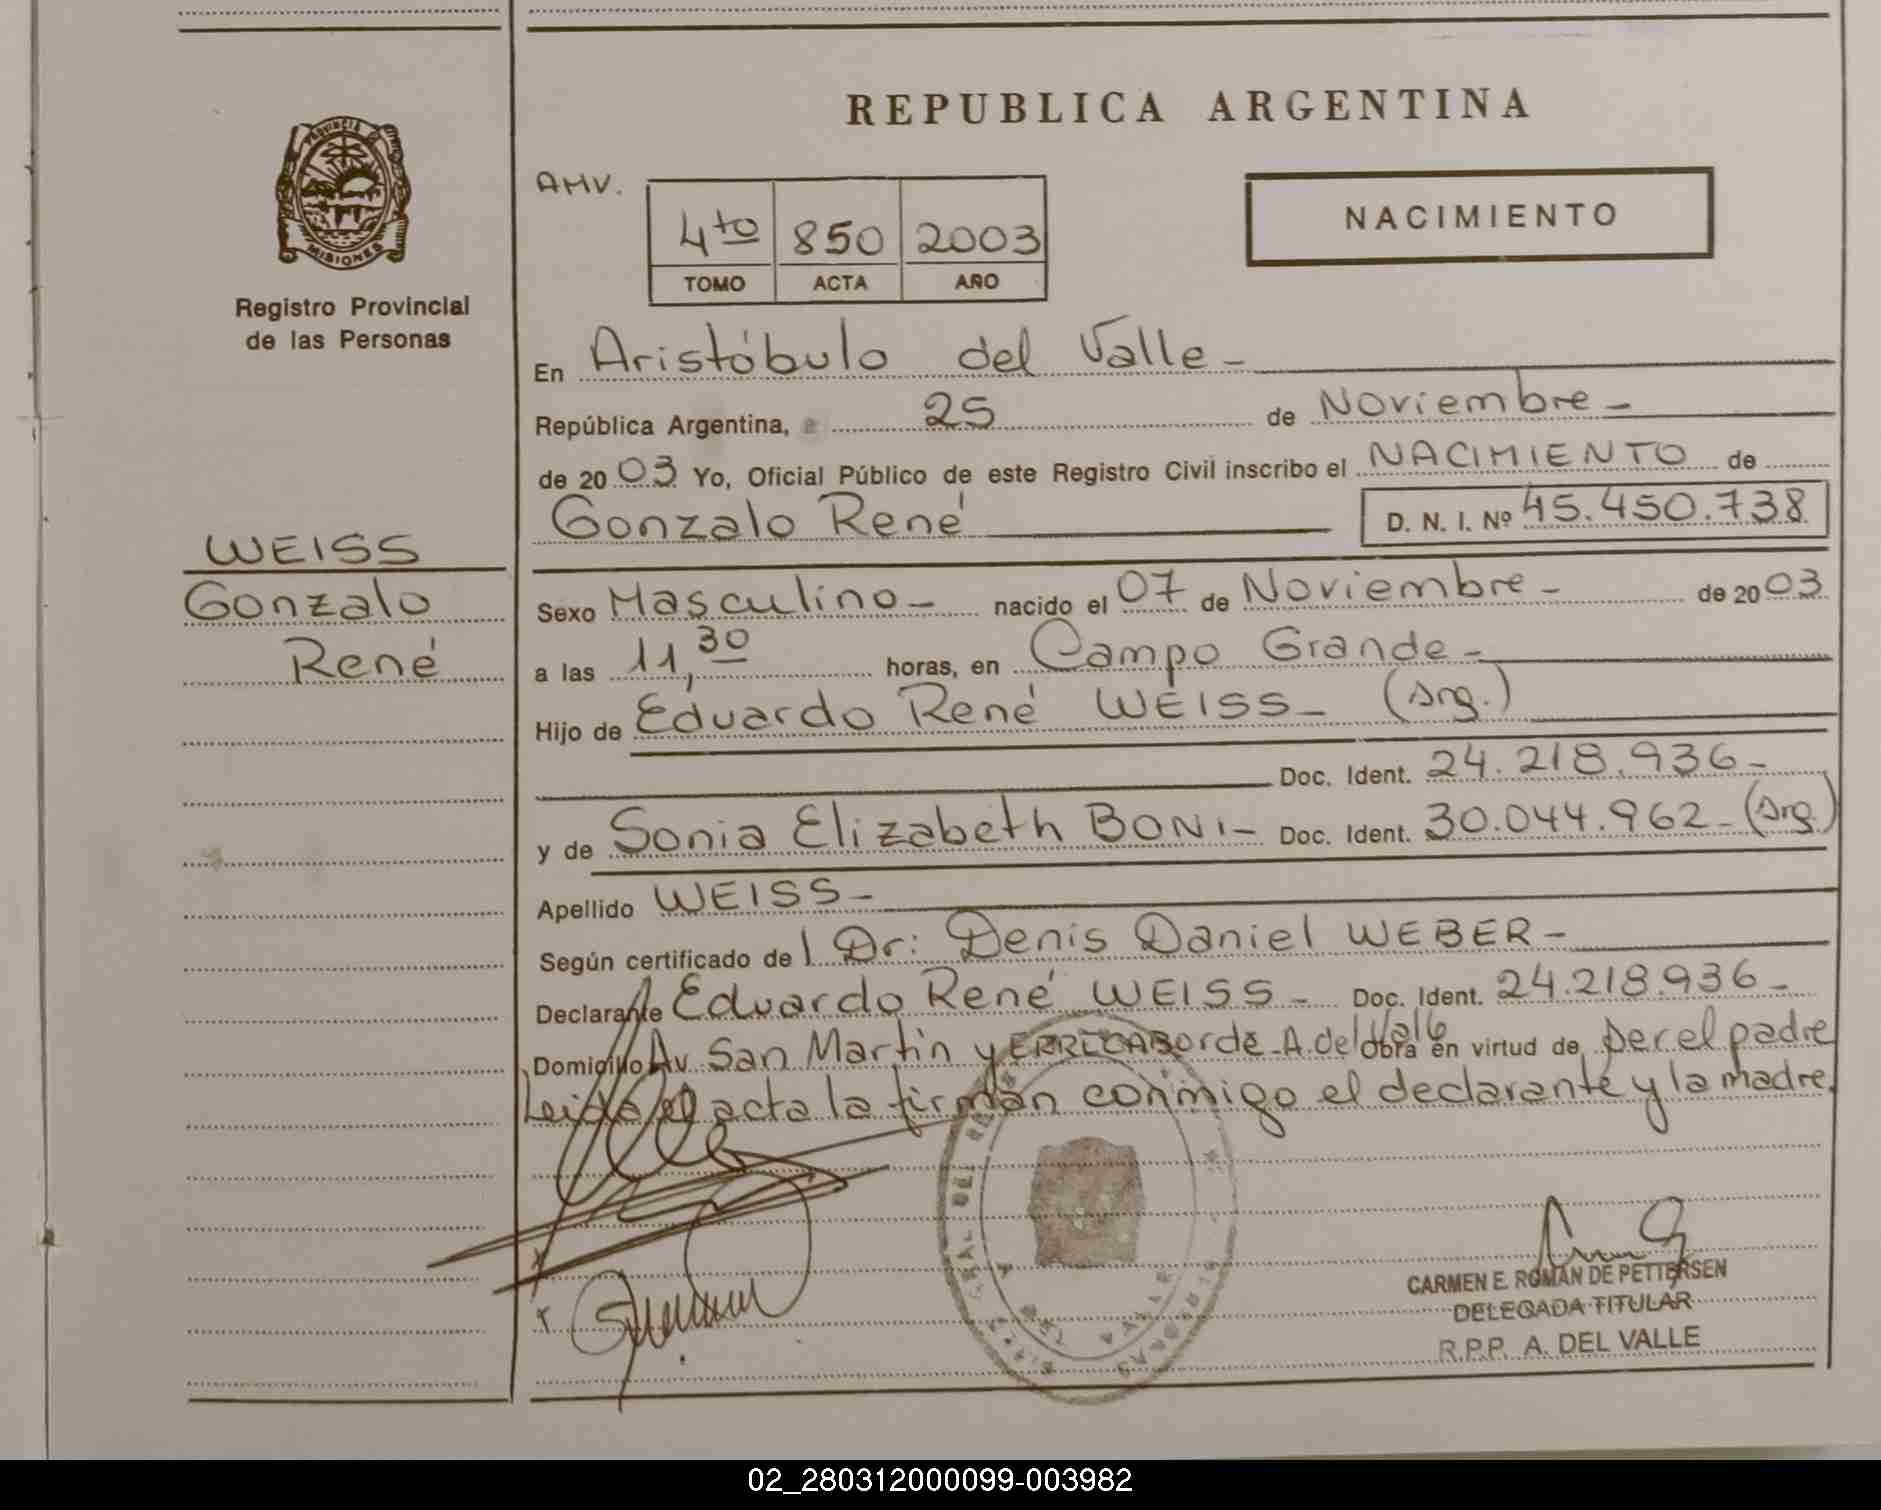 REPUBLICA ARGENTINA
PROVINCIA DE
MISIONES
Registro Provincial
de las Personas
AMV.
4to 850 2003
TOMO ACTA AÑO
NACIMIENTO
En Aristóbulo del Valle-
República Argentina, a 25 de Noviembre-
de 2003 Yo, Oficial Público de este Registro Civil inscribo el NACIMIENTO de
Gonzalo René D. N. I. Nº 45.450.738
WEISS
Gonzalo
René
Sexo Masculino- nacido el 07 de Noviembre- de 2003
a las 11,30 horas, en Campo Grande-
Hijo de Eduardo René WEISS- (Arg.)
Doc. Ident. 24.218.936-
y de Sonia Elizabeth BONI- Doc. Ident. 30.044.962-(Arg.)
Apellido WEISS-
Según certificado de l Dr: Denis Daniel WEBER-
Declarante Eduardo René WEISS- Doc. Ident. 24.218.936-
Domicilio Av. San Martín y ERRECABorde-A.del Valle Obra en virtud de ser el padre
Leida el acta la firman conmigo el declarante y la madre.
CARMEN E. ROMAN DE PETTERSEN
DELEGADA TITULAR
R.P.P. A. DEL VALLE
02_280312000099-003982